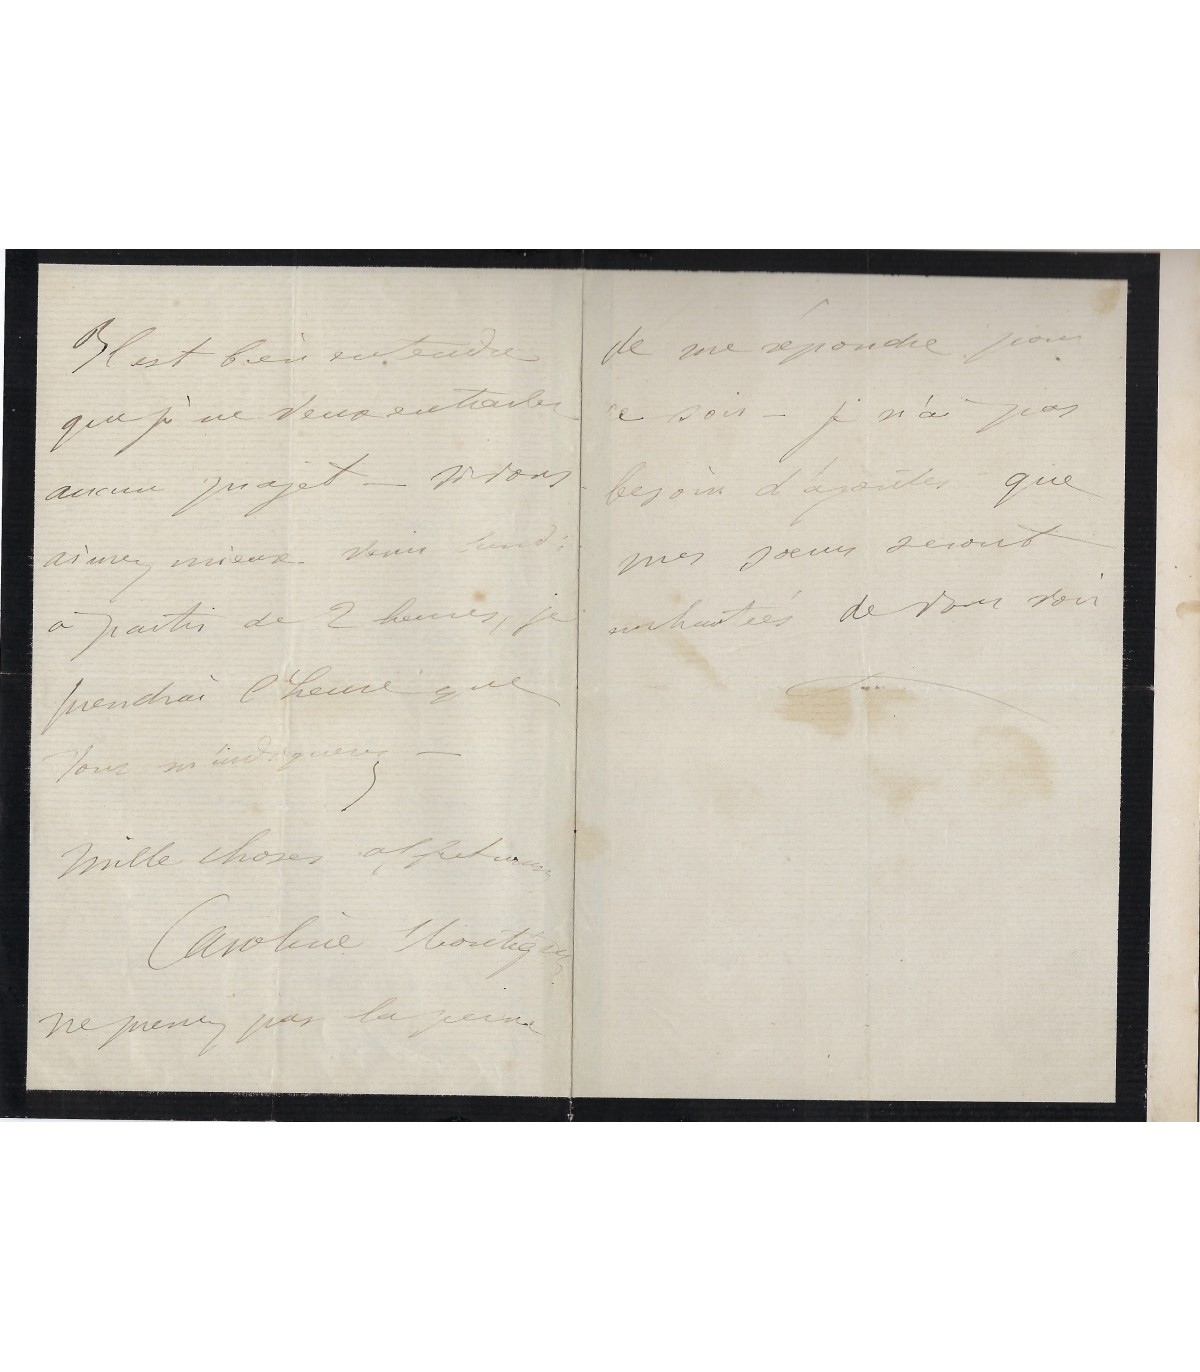 Il est bien entendu
que je ne veux entraver
aucun projet — si vous
aimez mieux venir lundi
à partir de 2 heures, je
prendrai l'heure que
vous m'indiquerez —
mille choses affectueuses
Caroline Montigny
ne prenez pas la peine
de me répondre pour
ce soir — je n'ai pas
besoin d'ajouter que
mes sœurs seront
enchantées de vous voir